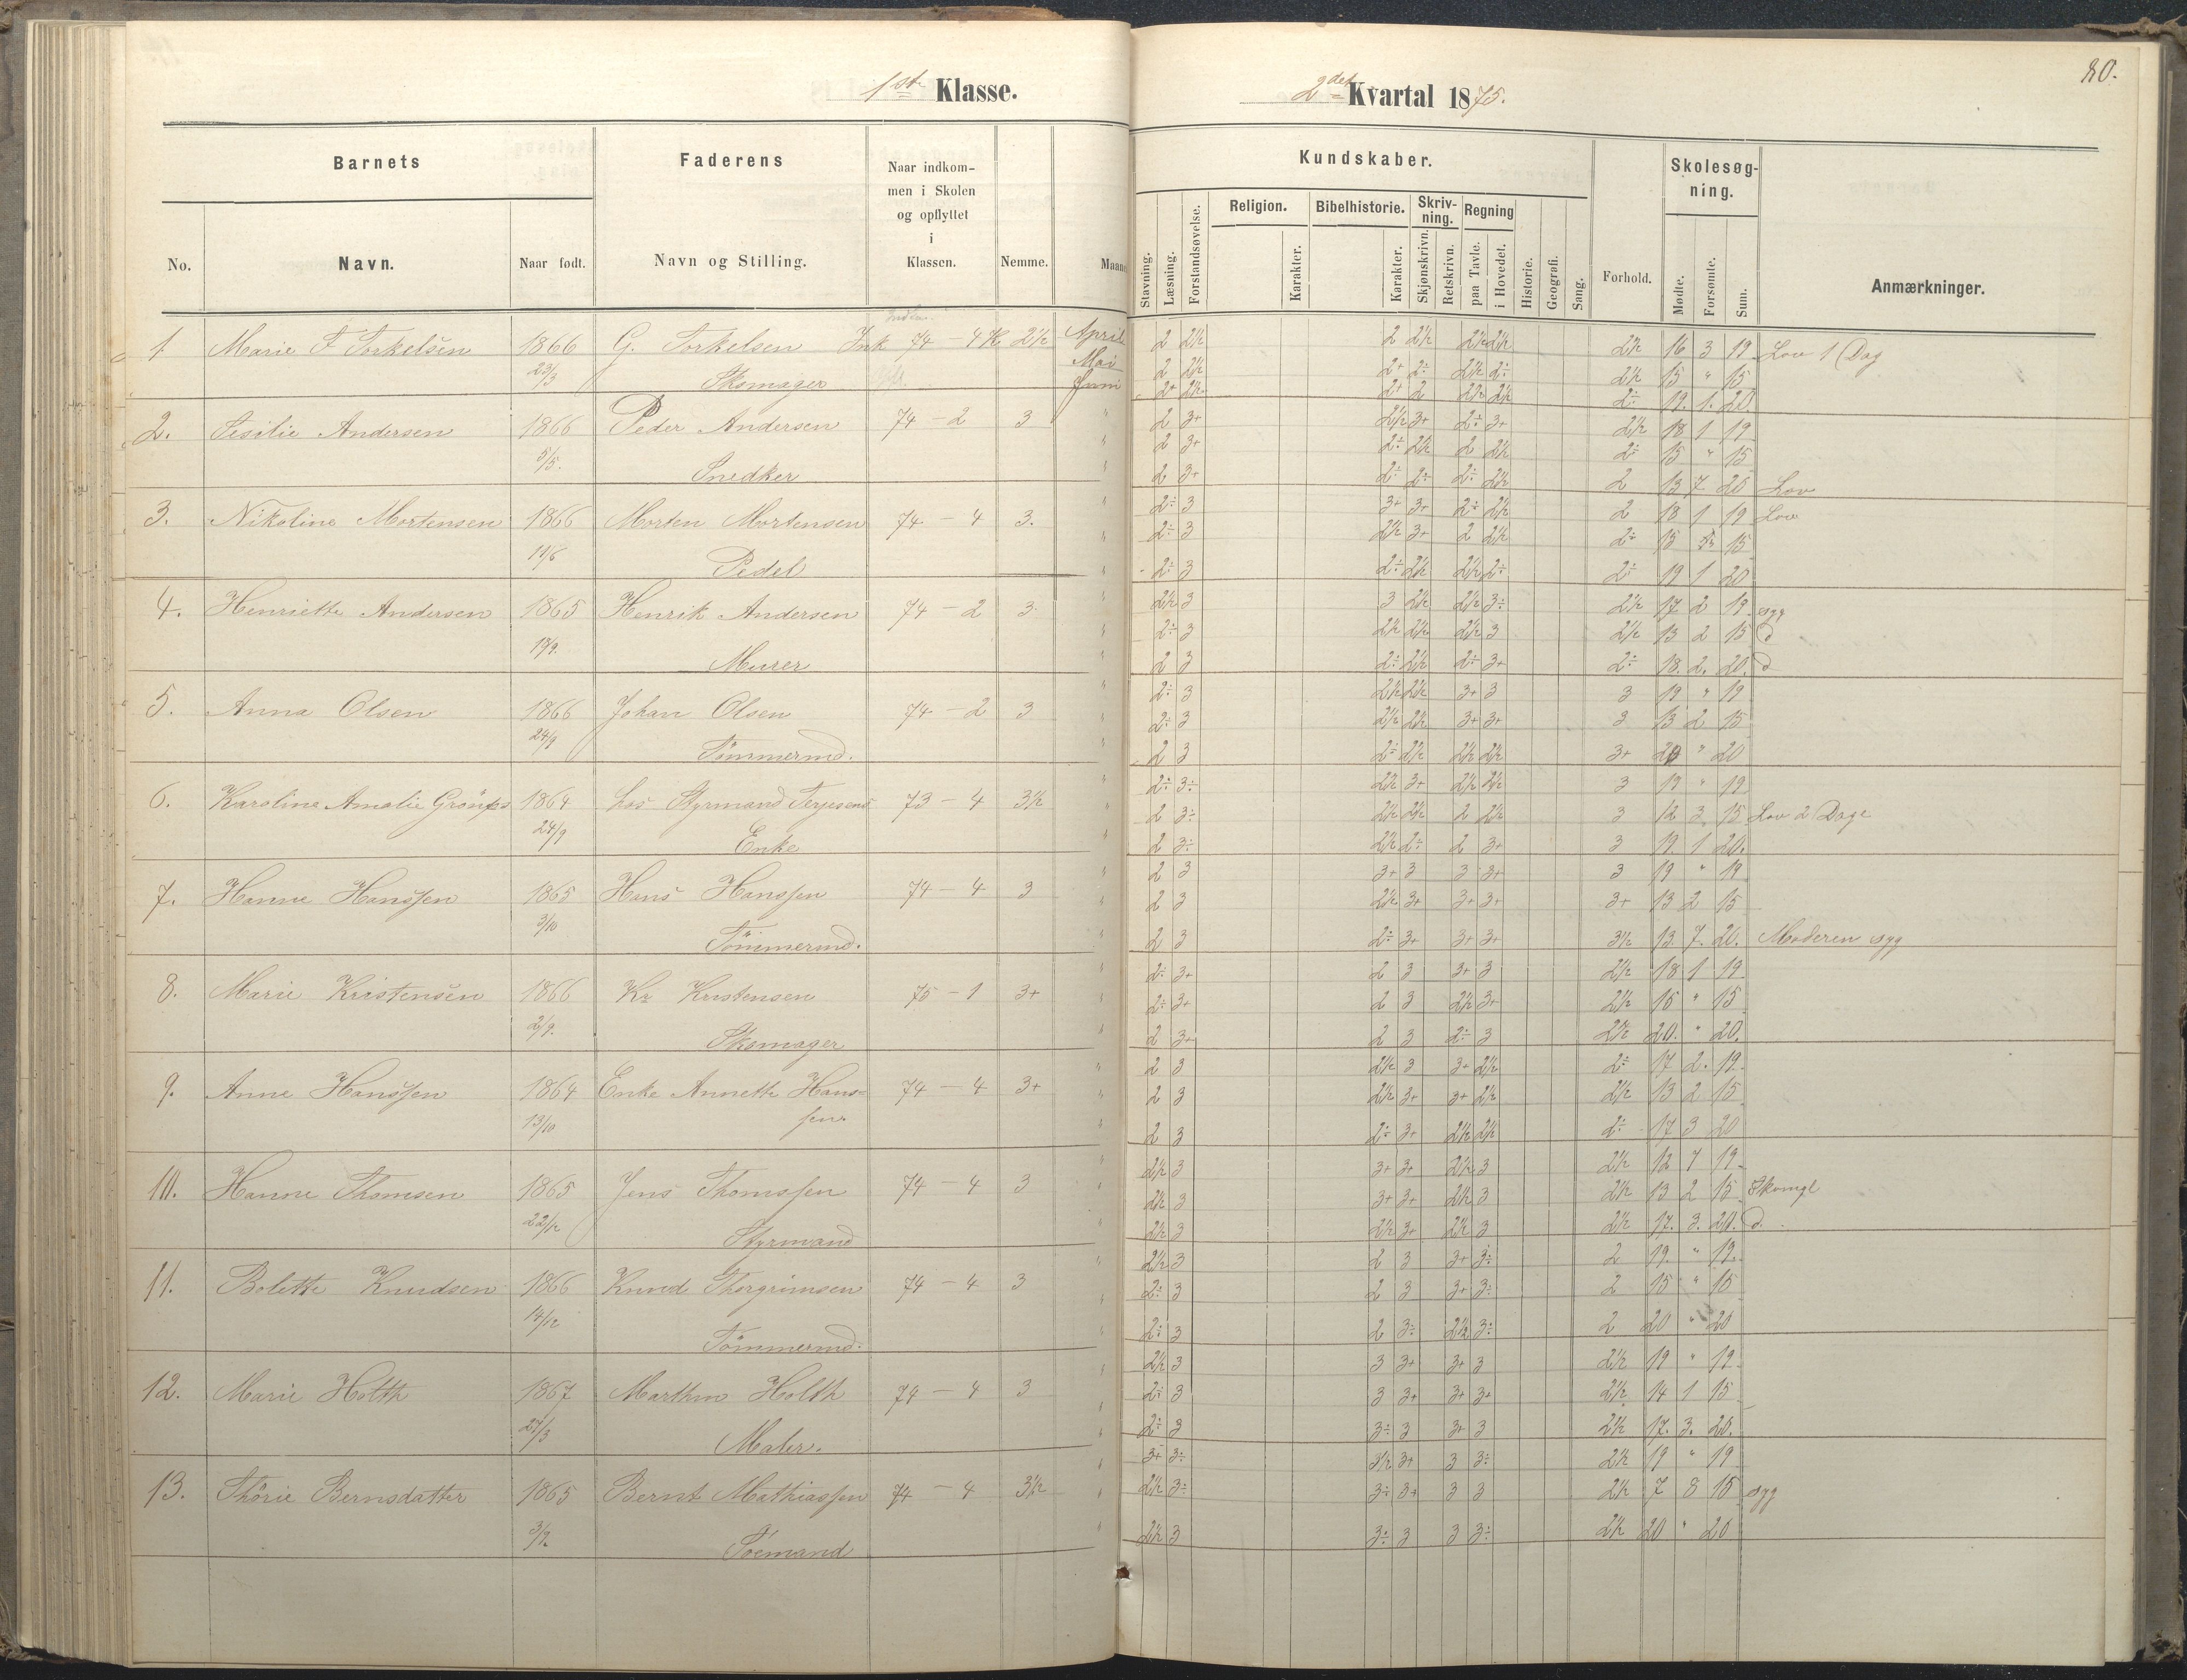 1ste Klasse.
2det Kvartal 1875.
80.
Barnets
Faderens
Naar indkom-
men i Skolen
og opflyttet
i
Klassen.
No.
Navn.
Naar født.
Navn og Stilling.
Nemme.
Kundskaber.
Skolesøg-
ning.
Religion.
Bibelhistorie.
Skriv-
ning.
Regning
Stavning.
Læsning.
Forstandsøvelse.
Karakter.
Karakter.
Skjønskrivn.
Retskrivn.
paa Tavle.
i Hovedet.
Historie.
Geografi.
Sang.
Forhold.
Mødte.
Forsømte.
Sum.
Anmærkninger.
1 Marie F Torkelsen 1866 G. Torkelsen Ink 74 – 4 K 2½ April 2 2½ 2 2½ 2½ 2½ 2½ 16 3 19 Lov 1 Dag
23/3 Skomager Mai 2 2½ 2+ 2÷ 2½ 2÷ 2½ 15 " 15
Juni 2+ 2½ 2+ 2 2½ 2½ 2÷ 19. 1. 20
2. Sesilie Andersen 1866 Peder Andersen 74 – 2 3 " 2 3+ 2½ 3+ 2÷ 3+ 2½ 18 1 19
5/5. " 2 3+ 2÷ 2½ 2 2½ 2÷ 15 " 15
Snedker " 2 3+ 2÷ 2÷ 2÷ 2½ 2 13 7 20 Lov
3. Nikoline Mortensen 1866 Morten Mortensen 74 – 4 3. " 2÷ 3 3+ 3+ 2÷ 2½ 2 18 1 19 Lov
11/6 " 2÷ 3 2½ 3+ 2 2½ 2÷ 15 15
Pedel " 2÷ 3 2÷ 2½ 2½ 2÷ 2÷ 19 1 20
4. Henriette Andersen 1865 Henrik Andersen 74 – 2 3 " 2½ 3 3 2½ 2½ 3÷ 2½ 17 2 19 syg
19/9. " 2÷ 3 2½ 2½ 2½ 3 2½ 13 2 15 d
Murer " 2 3 2÷ 2½ 2÷ 3+ 2÷ 18. 2. 20. d
5. Anna Olsen 1866 Johan Olsen 74 – 2 3 " 2÷ 3 2½ 2½ 3+ 3 3 19 " 19
24/9 " 2÷ 3 2½ 2½ 3+ 3+ 3 13 2 15
Tömmermd. " 2 3 2÷ 2½ 2½ 2½ 3+ 20 " 20
6. Karoline Amalie 1864 hos Styrmand Terjesens 73 – 4 3½ " 2÷ 3÷ 2½ 3+ 2½ 2½ 3 19 " 19
24/9 " 2 3÷ 2½ 2½ 2 2½ 3 12 3 15 Lov 2 Dage
Enke " 2 3÷ 2½ 2÷ 2 3+ 3 19. 1 20.
7. Hanne Hanssen 1865 Hans Hanssen 74 – 4 3 " 2 3 3+ 3 3 3+ 3 19 " 19
3/10 " 2 3 2½ 3+ 3+ 3+ 3+ 13 2 15
Tömmermd. " 2 3 2÷ 3+ 3+ 3+ 3½ 13. 7. 20. Moderen syg
8. Marie Kristensen 1866 Kr Kristensen 75 – 1 3+ " 2÷ 3+ 2 3 3+ 3 2½ 18 1 19
2/9. " 2÷ 3+ 2 3 2½ 3+ 2½ 15 " 15
Skomager " 2 3+ 2 3 2÷ 3 2½ 20. " 20.
9. Anne Hanssen 1864 Enke Annette Hans= 74 – 4 3+ " 2 3 2½ 3 3+ 2½ 2÷ 17 2. 19.
13/10 sen. " 2 3 2½ 3+ 3+ 2½ 2½ 13 2 15
" 2 3 2÷ 3+ 2½ 2½ 2÷ 17 3 20
10. Hanne Thomsen 1865 Jens Thomssen 74 – 4 3 " 2½ 3 3+ 3+ 2½ 3 2½ 12 7 19
22/12 " 2½ 3 3+ 3+ 2½ 3 2½ 13 2 15 Skomgl
Styrmand 2½ 3 2½ 3+ 2½ 3 2½ 17. 3. 20. d.
11. Bolette Knudsen 1866 Knud Thorgrimsen 74 – 4 3 " 2½ 3 2 3 3+ 3÷ 2 19. " 19.
14/12 " 2÷ 3 2 3 3+ 3÷ 2 15 " 15
Tömmermd. " 2÷ 3 2 3÷ 2½ 3÷ 2 20 " 20
12. Marie Holth 1867 Marthin Holth 74 – 4 3 " 2½ 3 3 3+ 3+ 3 2½ 19 " 19
27/3 " 2÷ 3 3 3+ 3+ 3+ 2½ 14 1 15
Maler. " 2÷ 3 3÷ 3 3+ 3 2½ 17. 3. 20.
13. Thörie Bernsdatter 1865 Bernt Mathiassen 74 – 4 3½ " 3+ 3÷ 3½ 3+ 3 3÷ 2½ 19 " 19
3/9. " 2½ 3÷ 3÷ 3+ 3 3 2½ 7 8 15 syg
Söemand " 2½ 3 3÷ 3 3 3÷ 2½ 20 " 20